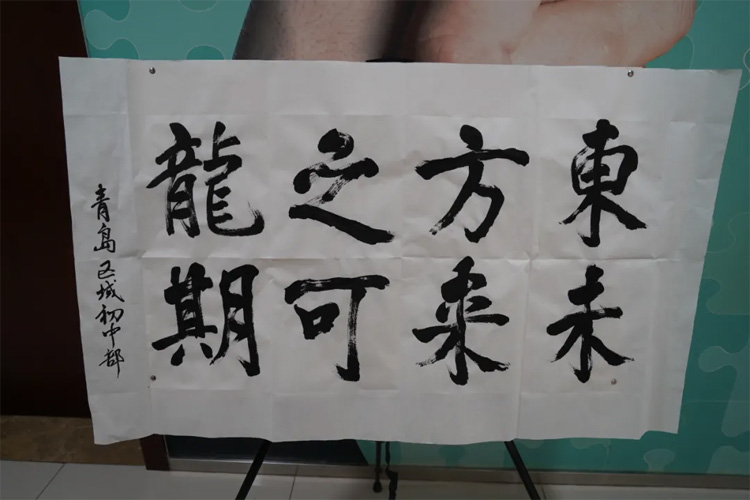 東方之龍
未来可期
青島区域初中部